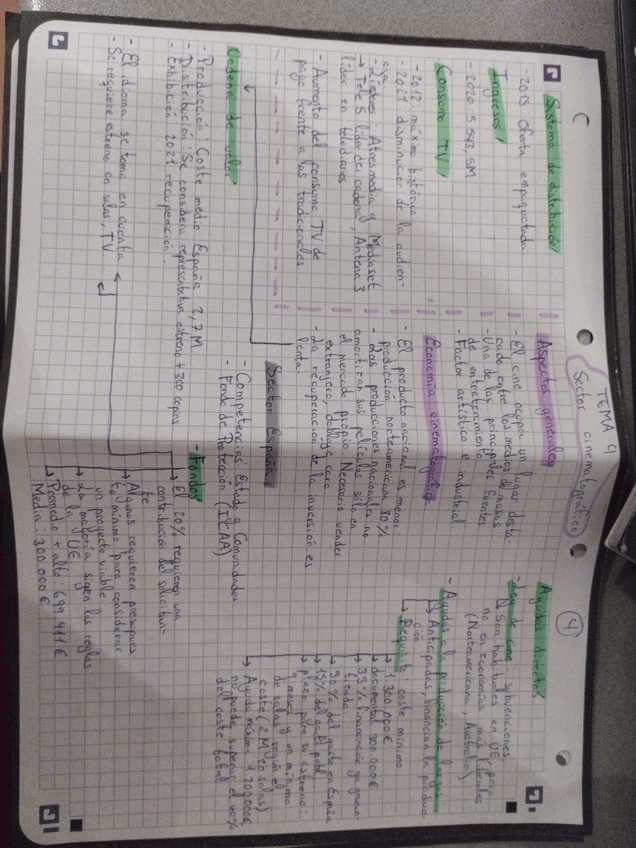 TEMA 4
Sector cinematográfico
4
Sistema de distribución
- 2015 Oferta empaquetada
Ingresos
- 2020: 5.543,5M
Consumo TV
- 2012 máximo histórico
- 2021 disminución de la audien-
cia
- Líderes: Atresmedia y Mediaset
→ Tele 5 líder de cadena, Antena 3
líder en telediarios
- Aumento del consumo TV de
pago frente a las tradicionales
Cadena de valor
- Producción: Coste medio España 2,7M
- Distribución: Se considera representativa estreno + 300 copias
- Exhibición 2021 recuperación.
- El idioma se toma en cuenta
- Se requiere estreno en salas, TV...
Aspectos generales
- El cine ocupa un lugar desta-
cado entre los medios de masas
- Una de las principales fuentes
de entretenimiento
- Factor artístico e industrial
Economía cinematográfica
- El producto nacional es menor:
producción norteamericana 80%
- Las producciones nacionales no
amortizar sus películas sólo en
el mercado propio. Necesario vender
extranjero, doblaje caro
- La recuperación de la inversión es
lenta.
Sector España
- Competencias: Estado a Comunidades
- Fondo de Protección (ICAA)
- Fondos
→ El 20% requieren una
contribución del solicitan-
te
→ Algunos requieren presupues-
to mínimo para considerar
un proyecto viable
→ La mayoría sigen las reglas
de la UE
→ Promedio + alto: 699.411€
Media: 300.000€
Ayudas directas
- Ley de cine: subvenciones
↳ Son habituales en UE, pero
no en economías más liberales
(Norteamericana, Australia)
- Ayudas a la producción de largos
↳ Anticipadas, financian la produc-
ción
↳ Requisito: coste mínimo
→ 1.300.000€
→ documental 300.000€
→ 35% financiación ya garan-
tizada
→ 90% del gasto en España
→ 15% del gasto publi.
→ plazo para su estreno:
9 meses y un mínimo
de salas según el
coste (2M en salas)
→ Ayuda máxima 1.200.000€
no puede superar el 40%
del coste total